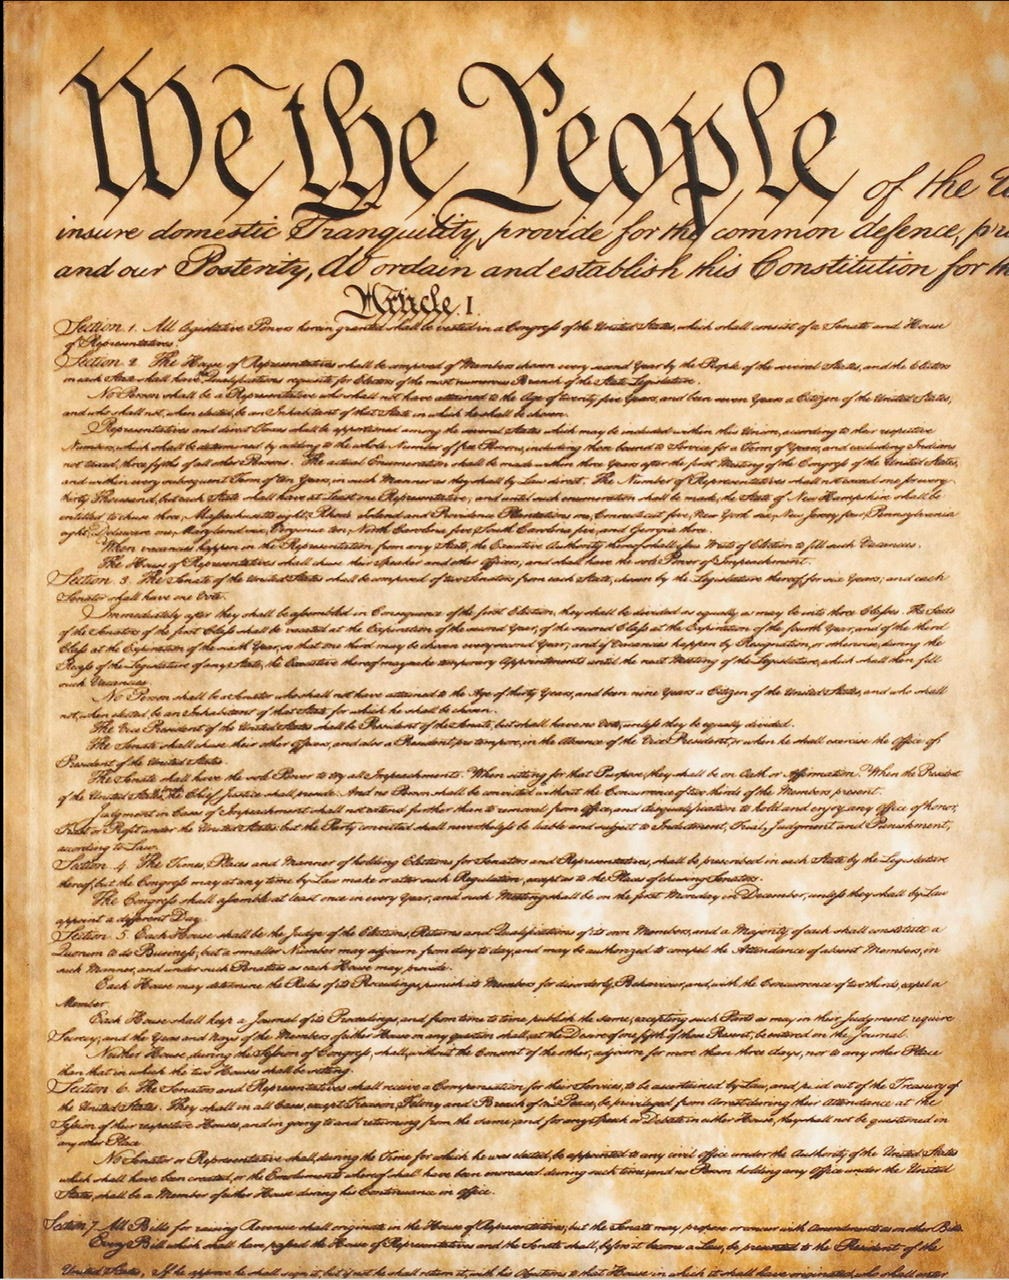 We the People of the
insure domestic Tranquility, provide for the common defence,
and our Posterity, do ordain and establish this Constitution for
Article. I.
Section 1. All legislative Powers herein granted shall be vested in a Congress of the United States, which shall consist of a Senate and House
of Representatives.
Section 2. The House of Representatives shall be composed of Members chosen every second Year by the People of the several States, and the Electors
in each State shall have the Qualifications requisite for Electors of the most numerous Branch of the State Legislature.
No Person shall be a Representative who shall not have attained to the Age of twenty five Years, and been seven Years a Citizen of the United States,
and who shall not, when elected, be an Inhabitant of that State in which he shall be chosen.
Representatives and direct Taxes shall be apportioned among the several States which may be included within this Union, according to their respective
Numbers, which shall be determined by adding to the whole Number of free Persons, including those bound to Service for a Term of Years, and excluding Indians
not taxed, three fifths of all other Persons. The actual Enumeration shall be made within three Years after the first Meeting of the Congress of the United States,
and within every subsequent Term of ten Years, in such Manner as they shall by Law direct. The Number of Representatives shall not exceed one for every
thirty Thousand, but each State shall have at Least one Representative; and until such enumeration shall be made, the State of New Hampshire shall be
entitled to chuse three, Massachusetts eight, Rhode Island and Providence Plantations one, Connecticut five, New York six, New Jersey four, Pennsylvania
eight, Delaware one, Maryland six, Virginia ten, North Carolina five, South Carolina five, and Georgia three.
When vacancies happen in the Representation from any State, the Executive Authority thereof shall issue Writs of Election to fill such Vacancies.
The House of Representatives shall chuse their Speaker and other Officers; and shall have the sole Power of Impeachment.
Section 3. The Senate of the United States shall be composed of two Senators from each State, chosen by the Legislature thereof, for six Years; and each
Senator shall have one Vote.
Immediately after they shall be assembled in Consequence of the first Election, they shall be divided as equally as may be into three Classes. The Seats
of the Senators of the first Class shall be vacated at the Expiration of the second Year, of the second Class at the Expiration of the fourth Year, and of the third
Class at the Expiration of the sixth Year, so that one third may be chosen every second Year; and if Vacancies happen by Resignation, or otherwise, during the
Recess of the Legislature of any State, the Executive thereof may make temporary Appointments until the next Meeting of the Legislature, which shall then fill
such Vacancies.
No Person shall be a Senator who shall not have attained to the Age of thirty Years, and been nine Years a Citizen of the United States, and who shall
not, when elected, be an Inhabitant of that State for which he shall be chosen.
The Vice President of the United States shall be President of the Senate, but shall have no Vote, unless they be equally divided.
The Senate shall chuse their other Officers, and also a President pro tempore, in the Absence of the Vice President, or when he shall exercise the Office of
President of the United States.
The Senate shall have the sole Power to try all Impeachments. When sitting for that Purpose, they shall be on Oath or Affirmation. When the President
of the United States is tried, the Chief Justice shall preside: And no Person shall be convicted without the Concurrence of two thirds of the Members present.
Judgment in Cases of Impeachment shall not extend further than to removal from Office, and disqualification to hold and enjoy any Office of honor,
Trust or Profit under the United States: but the Party convicted shall nevertheless be liable and subject to Indictment, Trial, Judgment and Punishment,
according to Law.
Section 4. The Times, Places and Manner of holding Elections for Senators and Representatives, shall be prescribed in each State by the Legislature
thereof; but the Congress may at any time by Law make or alter such Regulation, except as to the Places of chusing Senators.
The Congress shall assemble at least once in every Year, and such Meeting shall be on the first Monday in December, unless they shall by Law
appoint a different Day.
Section 5. Each House shall be the Judge of the Elections, Returns and Qualifications of its own Members, and a Majority of each shall constitute a
Quorum to do Business; but a smaller Number may adjourn from day to day, and may be authorized to compel the Attendance of absent Members, in
such Manner, and under such Penalties as each House may provide.
Each House may determine the Rules of its Proceedings, punish its Members for disorderly Behaviour, and, with the Concurrence of two thirds, expel a
Member.
Each House shall keep a Journal of its Proceedings, and from time to time publish the same, excepting such Parts as may in their Judgment require
Secrecy; and the Yeas and Nays of the Members of either House on any question shall, at the Desire of one fifth of those Present, be entered on the Journal.
Neither House, during the Session of Congress, shall, without the Consent of the other, adjourn for more than three days, nor to any other Place
than that in which the two Houses shall be sitting.
Section 6. The Senators and Representatives shall receive a Compensation for their Services, to be ascertained by Law, and paid out of the Treasury of
the United States. They shall in all Cases, except Treason, Felony and Breach of the Peace, be privileged from Arrest during their Attendance at the
Session of their respective Houses, and in going to and returning from the same; and for any Speech or Debate in either House, they shall not be questioned in
any other Place.
No Senator or Representative shall, during the Time for which he was elected, be appointed to any civil office under the Authority of the United States
which shall have been created, or the Emoluments whereof shall have been increased during such time; and no Person holding any Office under the United
States, shall be a Member of either House during his Continuance in office.
Section 7. All Bills for raising Revenue shall originate in the House of Representatives; but the Senate may propose or concur with Amendments as on other Bills.
Every Bill which shall have passed the House of Representatives and the Senate, shall, before it become a Law, be presented to the President of the
United States; If he approve he shall sign it, but if not he shall return it, with his Objections to that House in which it shall have originated, who shall enter